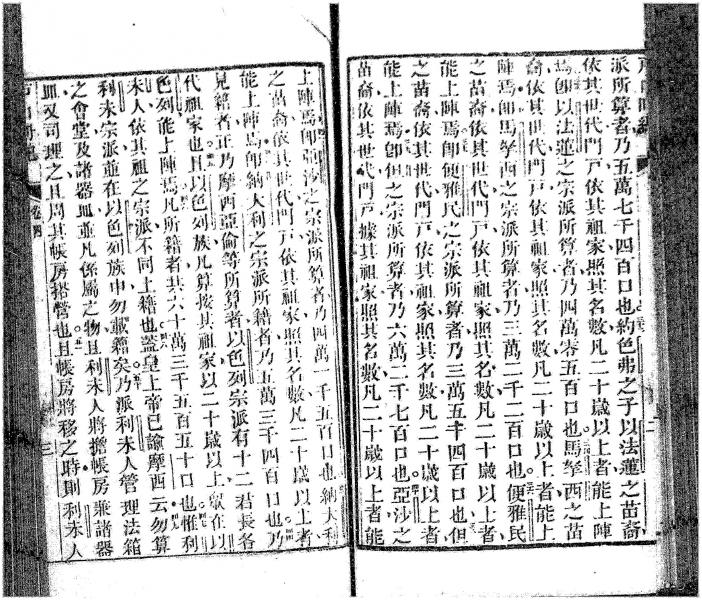 派所算者乃五萬七千四百口也約色弗之子以法蓮之苗裔
依其世代門戸依其祖家照其名數凡二十歲以上者能上陣
焉卽以法蓮之宗派所算者乃四萬零五百口也馬拏西之苗
裔依其世代門戸依其祖家照其名數凡二十歲以上者能上
陣焉卽馬拏西之宗派所算者乃三萬二千二百口也便雅民
之苗裔依其世代門戸依其祖家照其名數凡二十歲以上者
能上陣焉卽便雅民之宗派所算者乃三萬五千四百口也但
之苗裔依其世代門戸依其祖家照其名數凡二十歲以上者
能上陣焉卽但之宗派所算者乃六萬二千七百口也亞沙之
苗裔依其世代門戸據其祖家照其名數凡二十歲以上者能
二
上陣焉卽亞沙之宗派所算者乃四萬一千五百口也納大利
之苗裔依其世代門戸依其祖家照其名數凡二十歲以上者
能上陣焉卽納大利之宗派所籍者乃五萬三千四百口也乃
見籍者正乃摩西亞倫等所算者以色列宗派有十二君長各
代祖家也且以色列族凡算按其祖家以二十歲以上在以
色列能上陣焉凡所籍者共六十萬三千五百五十口也惟利
未人依其祖之宗派不同上籍也蓋皇上帝已諭摩西云勿算
利未宗派並在以色列族中勿載籍矣乃派利未人管理法箱
之會堂及諸器皿並凡係屬之物且利未人將擔帳房兼諸器
皿又司理之且周其帳房搭營也且帳房將移之時則利未人
三